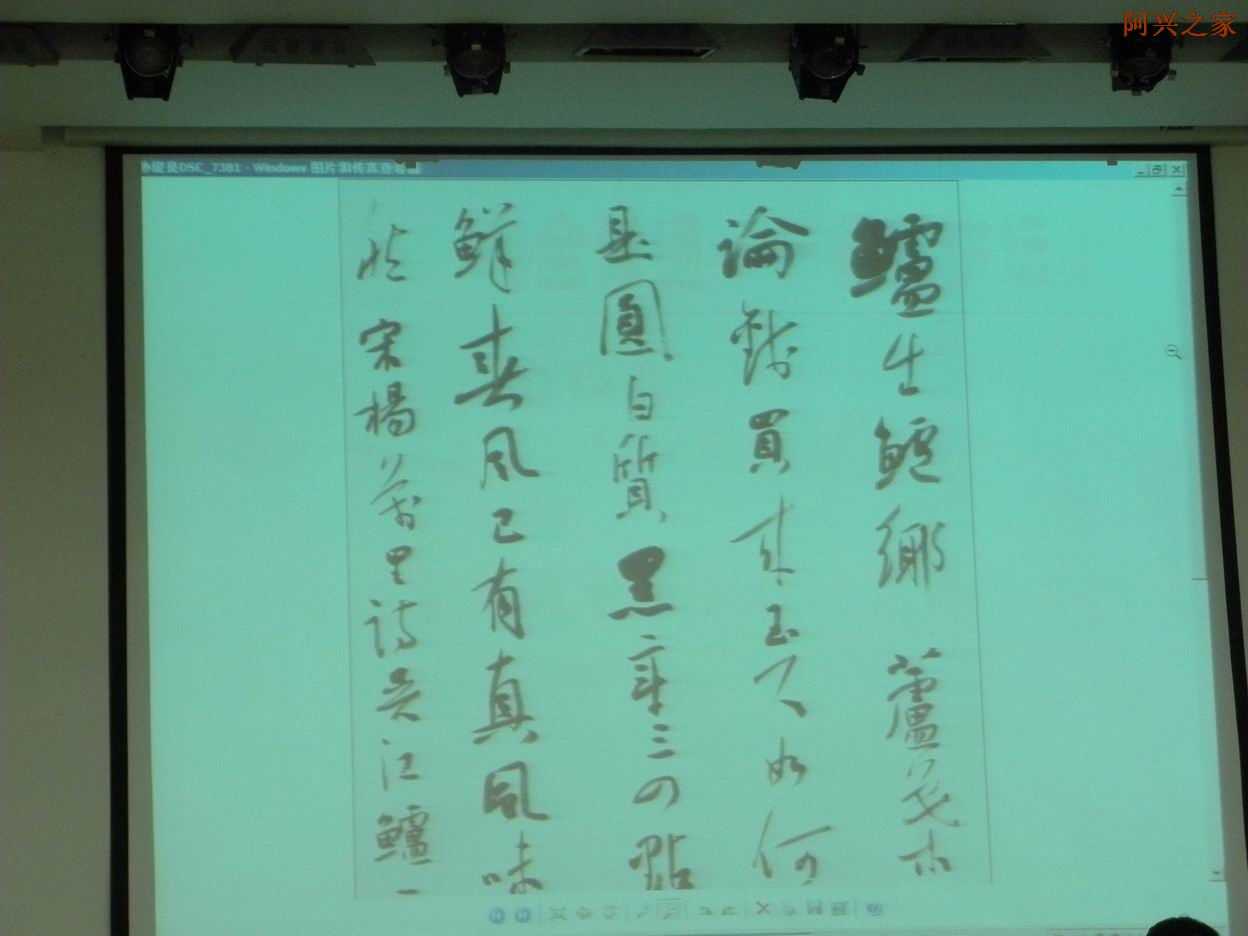 阿兴之家
DSC_7381 - Windows 图片和传真查看器
鱸出鱸鄉蘆葉
論錢買來玉尺如何
是圓白質黑章三四點
鮮春風已有真風味
宋楊萬里詩吳江鱸